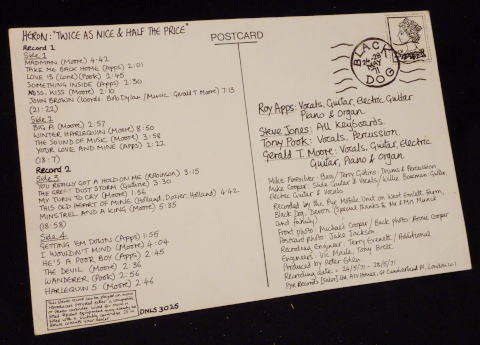 HERON: "TWICE AS NICE & HALF THE PRICE"
POSTCARD
Record 1
Side 1
MADMAN (Moore) 4:42
TAKE ME BACK HOME (Apps) 2:01
LOVE 13 (Pook) 2:45
SOMETHING INSIDE (Apps) 2:30
MISS KISS (Moore) 2:10
JOHN BROWN (Words: Bob Dylan / Music: Gerald T Moore) 7:13
(21:22)
Side 2
BIG A (Moore) 2:57
WINTER HARLEQUIN (Moore) 8:50
THE SOUND OF MUSIC (Moore) 3:58
YOUR LOVE AND MINE (Apps) 2:22
(18:7)
Record 2
Side 3
YOU REALLY GOT A HOLD ON ME (Robinson) 3:15
THE GREAT DUST STORM (Guthrie) 3:30
MY TURN TO CRY (Moore) 1:56
THIS OLD HEART OF MINE (Holland, Dozier, Holland) 4:42
MINSTREL AND A KING (Moore) 5:35
(18:58)
Side 4
GETTING 'EM DOWN (Apps) 1:55
I WOULDN'T MIND (Moore) 4:04
HE'S A POOR BOY (Apps) 2:45
THE DEVIL (Moore) 2:36
WANDERER (Pook) 2:56
HARLEQUIN 5 (Moore) 2:46
DNLS 3025
BLACK
DOG
Roy Apps: Vocals, Guitar, Electric Guitar
Piano & Organ.
Steve Jones: All Keyboards.
Tony Pook: Vocals, Percussion.
Gerald T. Moore: Vocals, Guitar, Electric
Guitar, Piano & Organ.
Mike Finesilver: Bass / Terry Gittins: Drums & Percussion
Mike Cooper: Slide Guitar & Vocals / Willie Bowman Guitar,
Electric Guitar & Vocals
Recorded by the Pye Mobile Unit on West Emlett Farm,
Black Dog, Devon (Special thanks to Mr & Mrs Minick
and family)
Front photo: Michael Cooper / Back photo: Annie Cooper
Postcard photo: Jake Jackson
Recording Engineer: Terry Everett / Additional
Engineers: Vic Maile, Tony Brett.
Produced by Peter Eden
Recording date: 24/5/71 - 28/5/71
Pye Records [Sales] Ltd. ATV House, Gt Cumberland Pl. London W.1